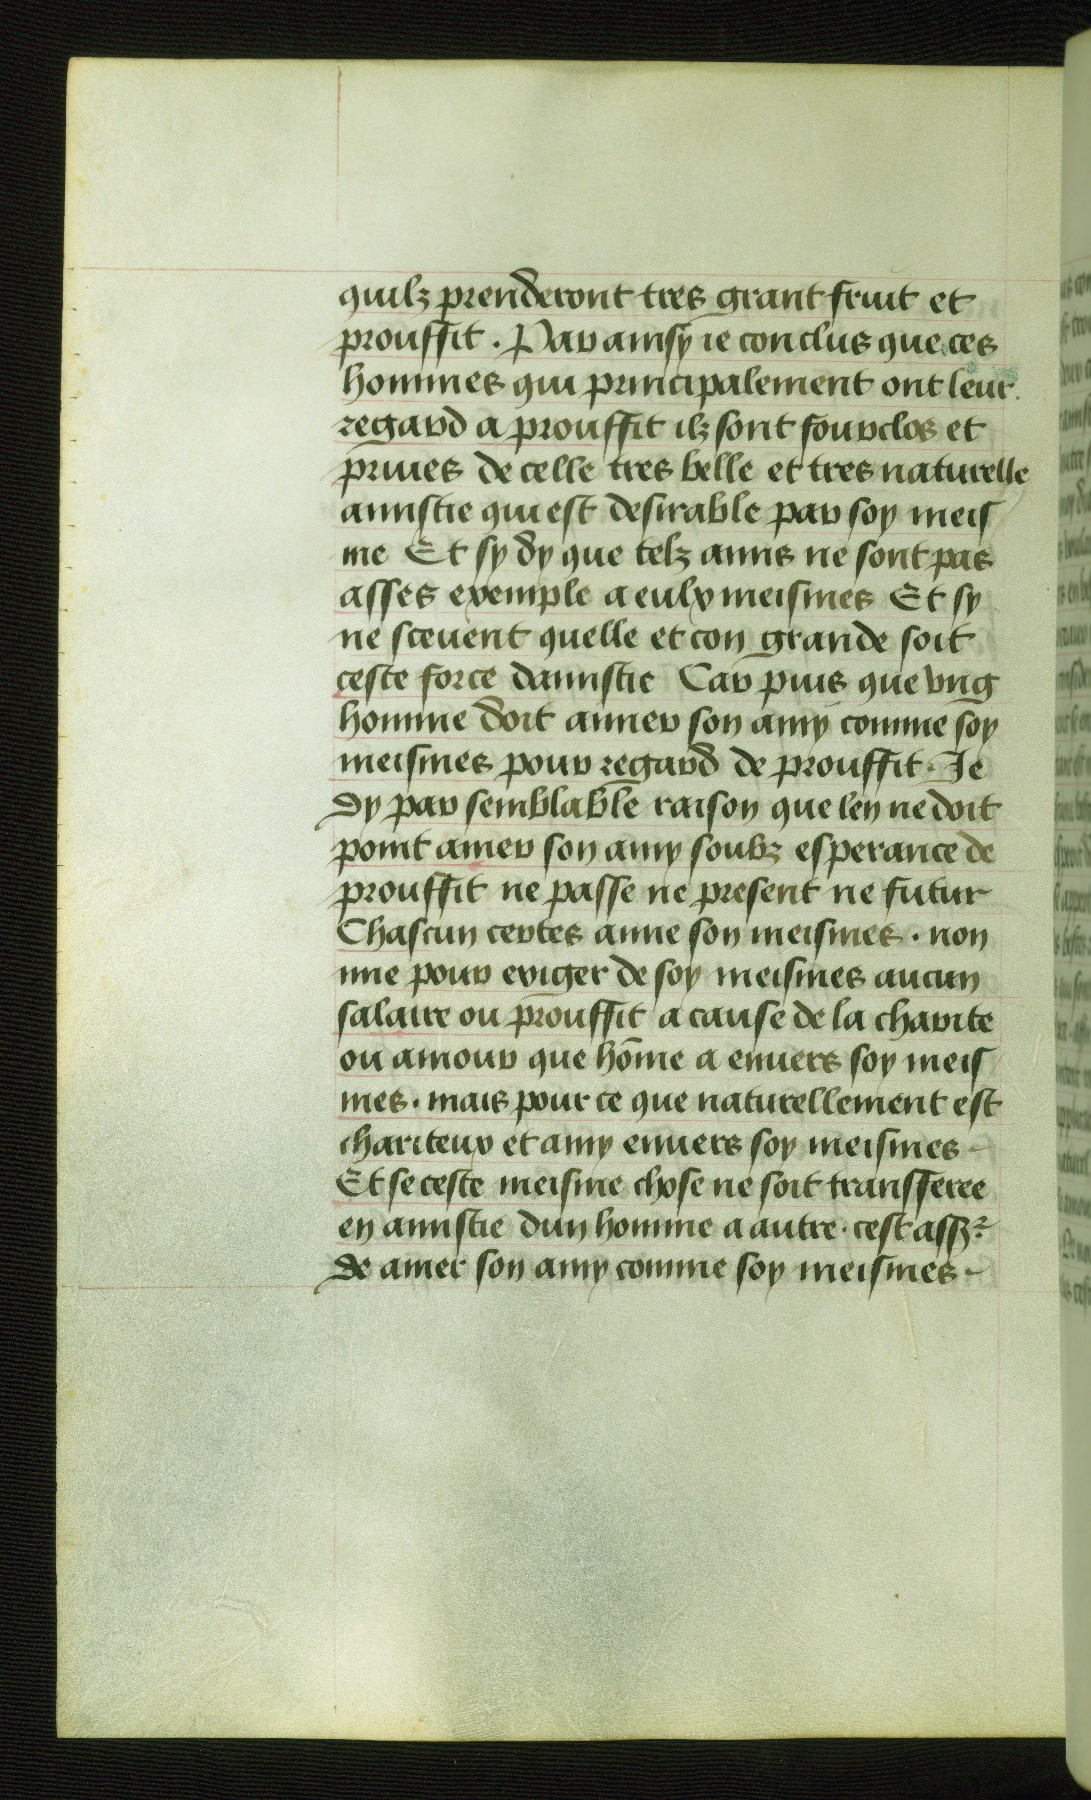 quilz prenderont tres grant fruit et
prouffit . Par ainsy ie conclus que ces
hommes qui principalement ont leur
regard a prouffit ilz sont fourclos et
priues de celle tres belle et tres naturelle
amistie qui est desirable par soy meis
me Et sy dy que telz amis ne sont pas
asses exemple a eulx meismes Et sy
ne sceuent quelle et con grande soit
ceste force damistie Car puis que vng
homme doit aimer son amy comme soy
meismes pour regard de prouffit . Je
dy par semblable raison que len ne doit
point amer son amy soubz esperance de
prouffit ne passe ne present ne futur
Chascun certes aime son meismes . non
mie pour exiger de soy meismes aucun
salaire ou prouffit a cause de la charite
ou amour que hōme a enuers soy meis
mes . mais pour ce que naturellement est
chariteux et amy enuers soy meismes
Et se ceste meisme chose ne soit transferee
en amistie dun homme a autre . cest assz.
de amer son amy comme soy meismes